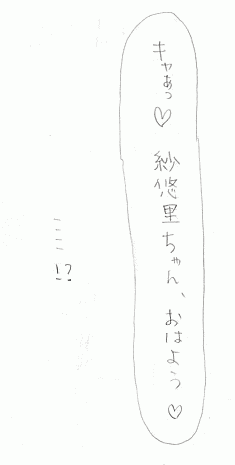 キャあっ♡ 紗悠里ちゃん、おはよう♡
ーーー!?